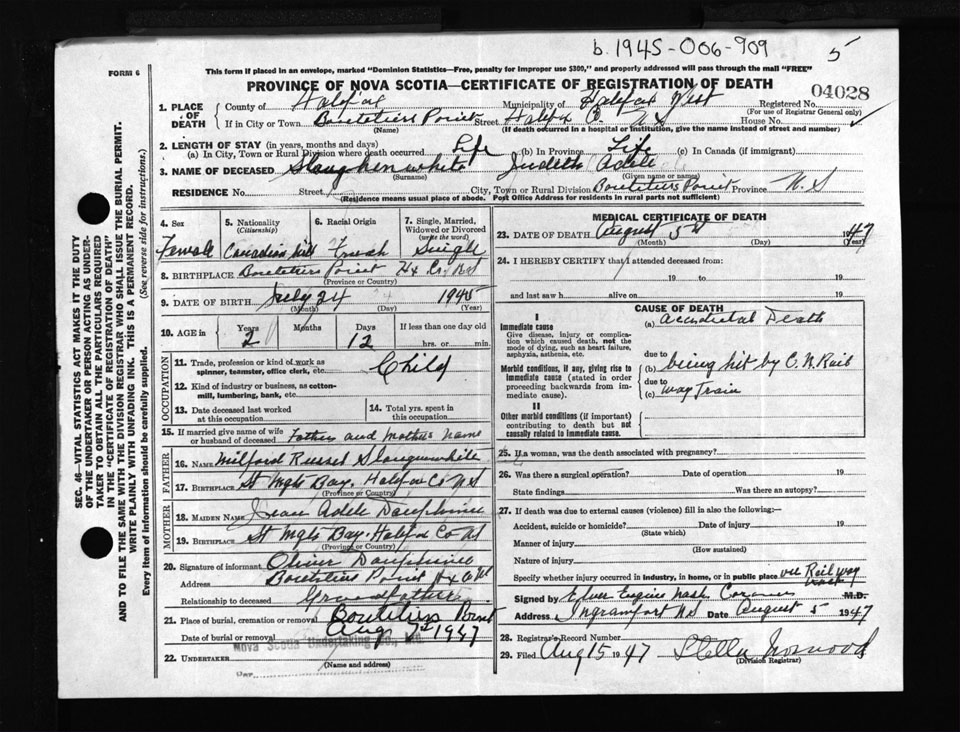 b. 1945-006-909
5
FORM 6
This form if placed in an envelope, marked "Dominion Statistics—Free, penalty for improper use $300," and properly addressed will pass through the mail "FREE"
PROVINCE OF NOVA SCOTIA—CERTIFICATE OF REGISTRATION OF DEATH
04028
1. PLACE OF DEATH
County of Halifax Municipality of Halifax West Registered No.
(For use of Registrar General only)
If in City or Town Boutiliers Point Street Halifax Co. N S House No.
(Name) (If death occurred in a hospital or institution, give the name instead of street and number)
2. LENGTH OF STAY (in years, months and days)
(a) In City, Town or Rural Division where death occurred Life (b) In Province Life (c) In Canada (if immigrant)
3. NAME OF DECEASED Slaughenwhite Judith Adele
(Surname) (Given name or names)
RESIDENCE No. Street, City, Town or Rural Division Boutiliers Point Province N. S
(Residence means usual place of abode. Post Office Address for residents in rural parts not sufficient)
4. Sex
Female
5. Nationality
(Citizenship)
Canadian
6. Racial Origin
French
7. Single, Married, Widowed or Divorced
(write the word)
Single
8. BIRTHPLACE Boutiliers Point Hx Co. N S
(Province or Country)
9. DATE OF BIRTH July 24 1945
(Month) (Day) (Year)
10. AGE in
Years Months Days If less than one day old
2 12 hrs. or min.
OCCUPATION
11. Trade, profession or kind of work as spinner, teamster, office clerk, etc. Child
12. Kind of industry or business, as cotton-mill, lumbering, bank, etc.
13. Date deceased last worked at this occupation
14. Total yrs. spent in this occupation
15. If married give name of wife or husband of deceased Father and Mothers Name
FATHER
16. NAME Milford Russel Slaugenwhite
17. BIRTHPLACE St Mgts Bay. Halifax Co N S
(Province or Country)
MOTHER
18. MAIDEN NAME Jean Adele Dauphinee
19. BIRTHPLACE St Mgts Bay. Halifax Co N S
(Province or Country)
20. Signature of informant Oliver Dauphinee
Address Boutiliers Point Hx Co N S
Relationship to deceased Grandfather
21. Place of burial, cremation or removal Boutiliers Point
Date of burial or removal Aug 7th 1947
22. UNDERTAKER Nova Scotia Undertaking Co., Ltd.
(Name and address)
Per
MEDICAL CERTIFICATE OF DEATH
23. DATE OF DEATH August 5th 1947
(Month) (Day) (Year)
24. I HEREBY CERTIFY that I attended deceased from:
19 to 19
and last saw h alive on 19
CAUSE OF DEATH
I
Immediate cause
Give disease, injury or complication which caused death, not the mode of dying, such as heart failure, asphyxia, asthenia, etc.
(a) Accidental Death
due to
Morbid conditions, if any, giving rise to immediate cause (stated in order proceeding backwards from immediate cause).
(b) being hit by C. N. Rail
due to
(c) way Train
II
Other morbid conditions (if important) contributing to death but not causally related to immediate cause.
25. If a woman, was the death associated with pregnancy?
26. Was there a surgical operation? Date of operation 19
State findings Was there an autopsy?
27. If death was due to external causes (violence) fill in also the following:—
Accident, suicide or homicide? Date of injury 19
(State which)
Manner of injury
(How sustained)
Nature of injury
Specify whether injury occurred in industry, in home, or in public place on Rail way track
Signed by Eugine Nash Coroner M.D.
Address Ingramport N S Date August 5 1947
28. Registrar's Record Number
29. Filed Aug 15 1947 Stella
(Division Registrar)
SEC. 46—VITAL STATISTICS ACT MAKES IT THE DUTY OF THE UNDERTAKER OR PERSON ACTING AS UNDERTAKER TO OBTAIN ALL THE PARTICULARS REQUIRED IN THE "CERTIFICATE OF REGISTRATION OF DEATH" AND TO FILE THE SAME WITH THE DIVISION REGISTRAR WHO SHALL ISSUE THE BURIAL PERMIT.
WRITE PLAINLY WITH UNFADING INK. THIS IS A PERMANENT RECORD.
Every item of information should be carefully supplied. (See reverse side for instructions.)